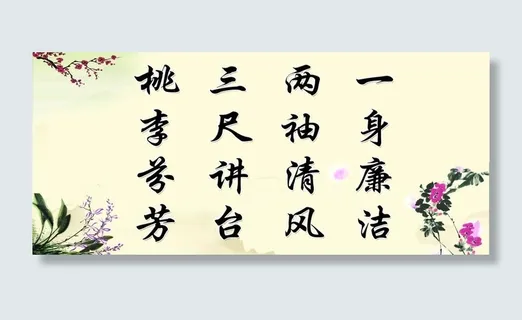 一身廉洁
两袖清风
三尺讲台
桃李芬芳